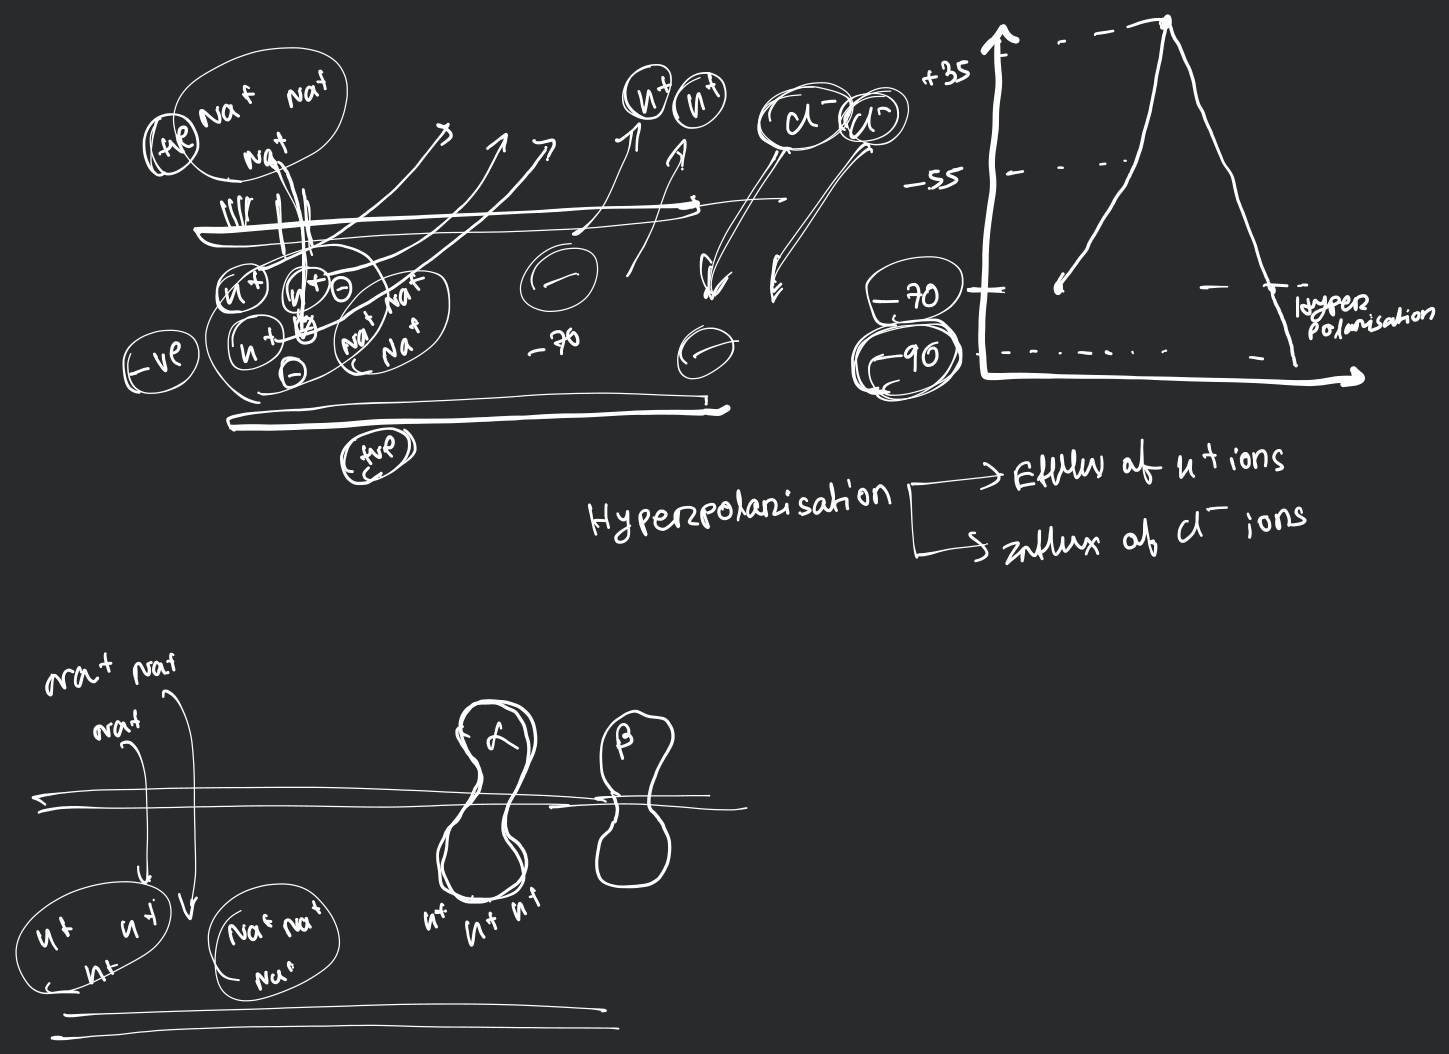 Na+ Na+
+ve
Na+
K+ K+
Cl- Cl-
+35
-55
K+ K+ -
Na+
K+
Na+ Na+
-ve
-
-
-70
-
-70
-90
Hyper
polarisation
+ve
Hyperpolarisation
Efflux of K+ ions
Influx of Cl- ions
Na+ Na+
Na+
α
β
K+ K+
K+
Na+ Na+
Na+
K+ K+ K+